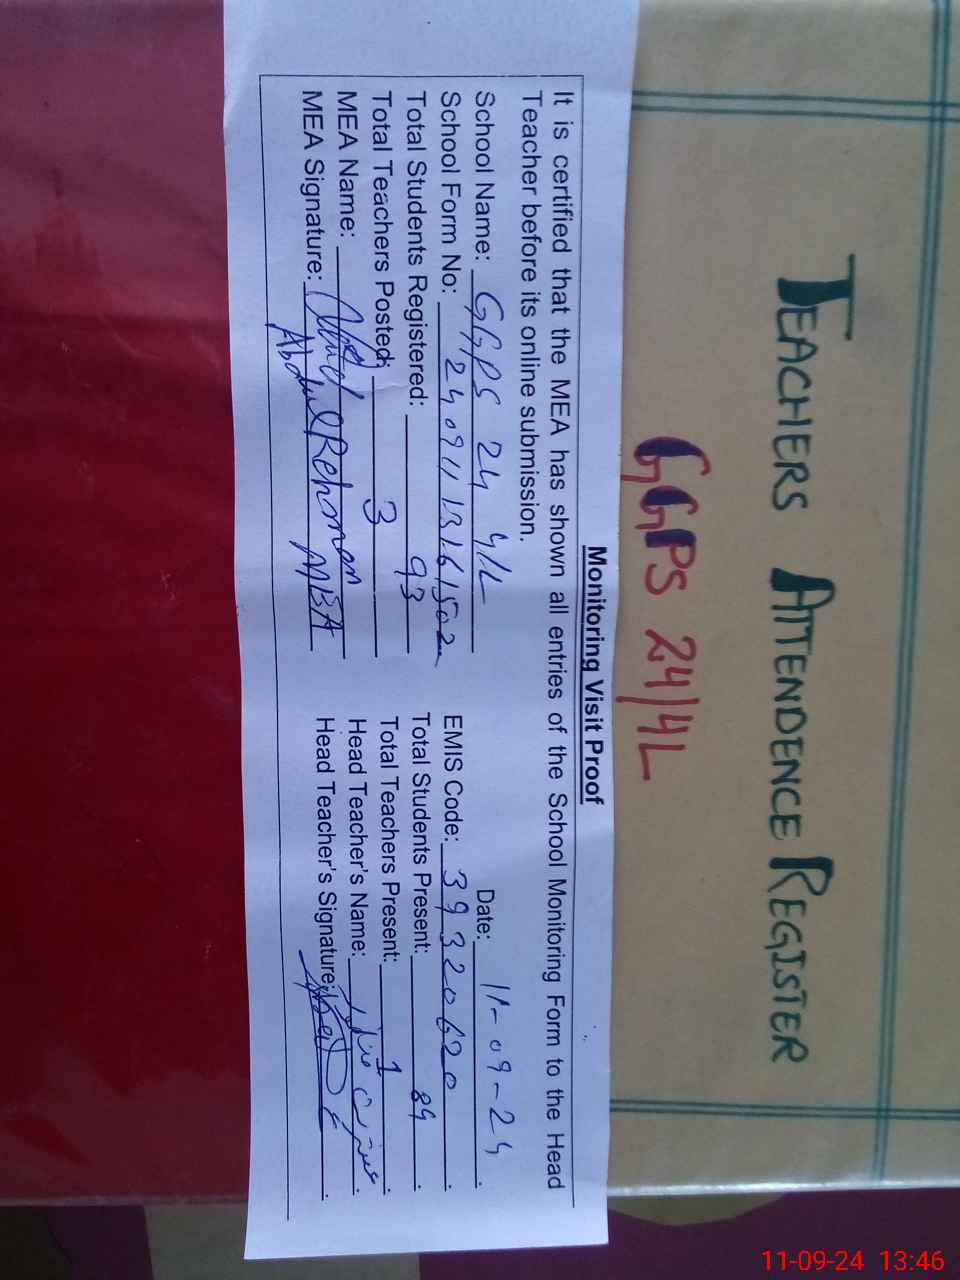 TEACHERS ATTENDENCE REGISTER
GGPS 24/4L
Monitoring Visit Proof
It is certified that the MEA has shown all entries of the School Monitoring Form to the Head
Teacher before its online submission.
Date: 11-09-24
School Name: GGPS 24 4/L
School Form No: 2409113161502 EMIS Code: 39320620
Total Students Registered: 93 Total Students Present: 89
Total Teachers Posted: 3 Total Teachers Present: 1
MEA Name: Abdul Rehman Head Teacher's Name:
MEA Signature: Head Teacher's Signature:
11-09-24 13:46